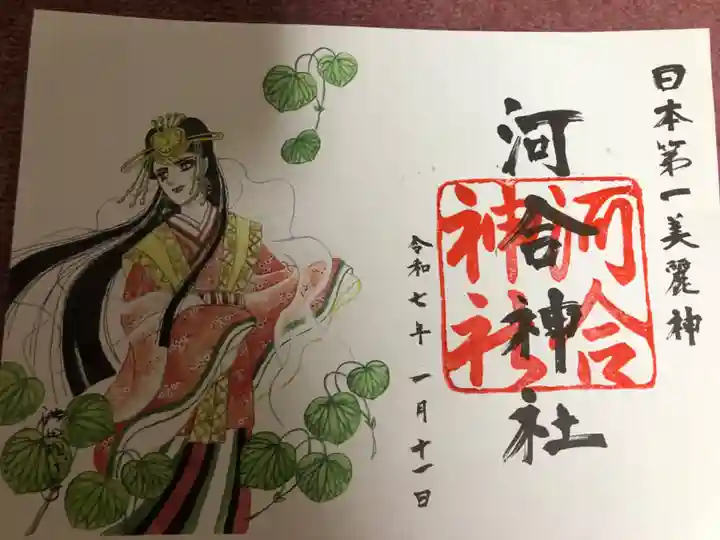 日本第一美麗神
河合神社
河合
神社
令和七年 一月十一日